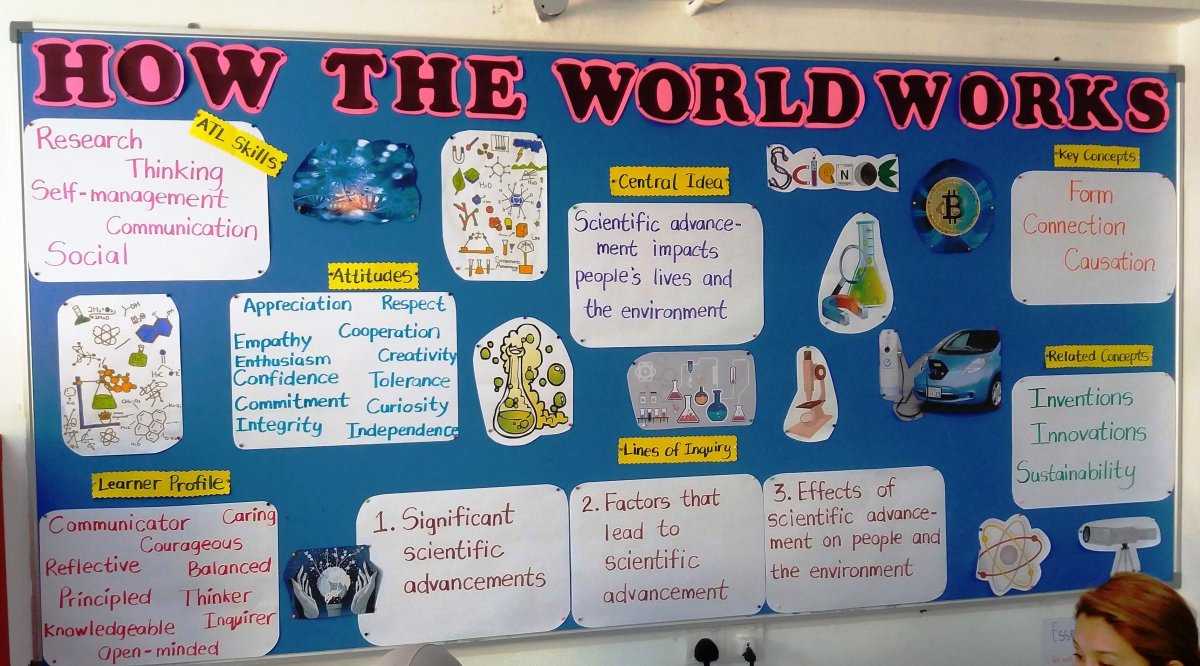 HOW THE WORLD WORKS
ATL Skills
Research
Thinking
Self-management
Communication
Social
Attitudes
Appreciation Respect
Empathy Cooperation
Enthusiasm Creativity
Confidence Tolerance
Commitment Curiosity
Integrity Independence
Central Idea
Scientific advance-
ment impacts
people's lives and
the environment
SCIENCE
Key Concepts
Form
Connection
Causation
Related Concepts
Inventions
Innovations
Sustainability
Learner Profile
Communicator Caring
Courageous
Reflective Balanced
Principled Thinker
Knowledgeable Inquirer
Open-minded
Lines of Inquiry
1. Significant
scientific
advancements
2. Factors that
lead to
scientific
advancement
3. Effects of
scientific advance-
ment on people and
the environment